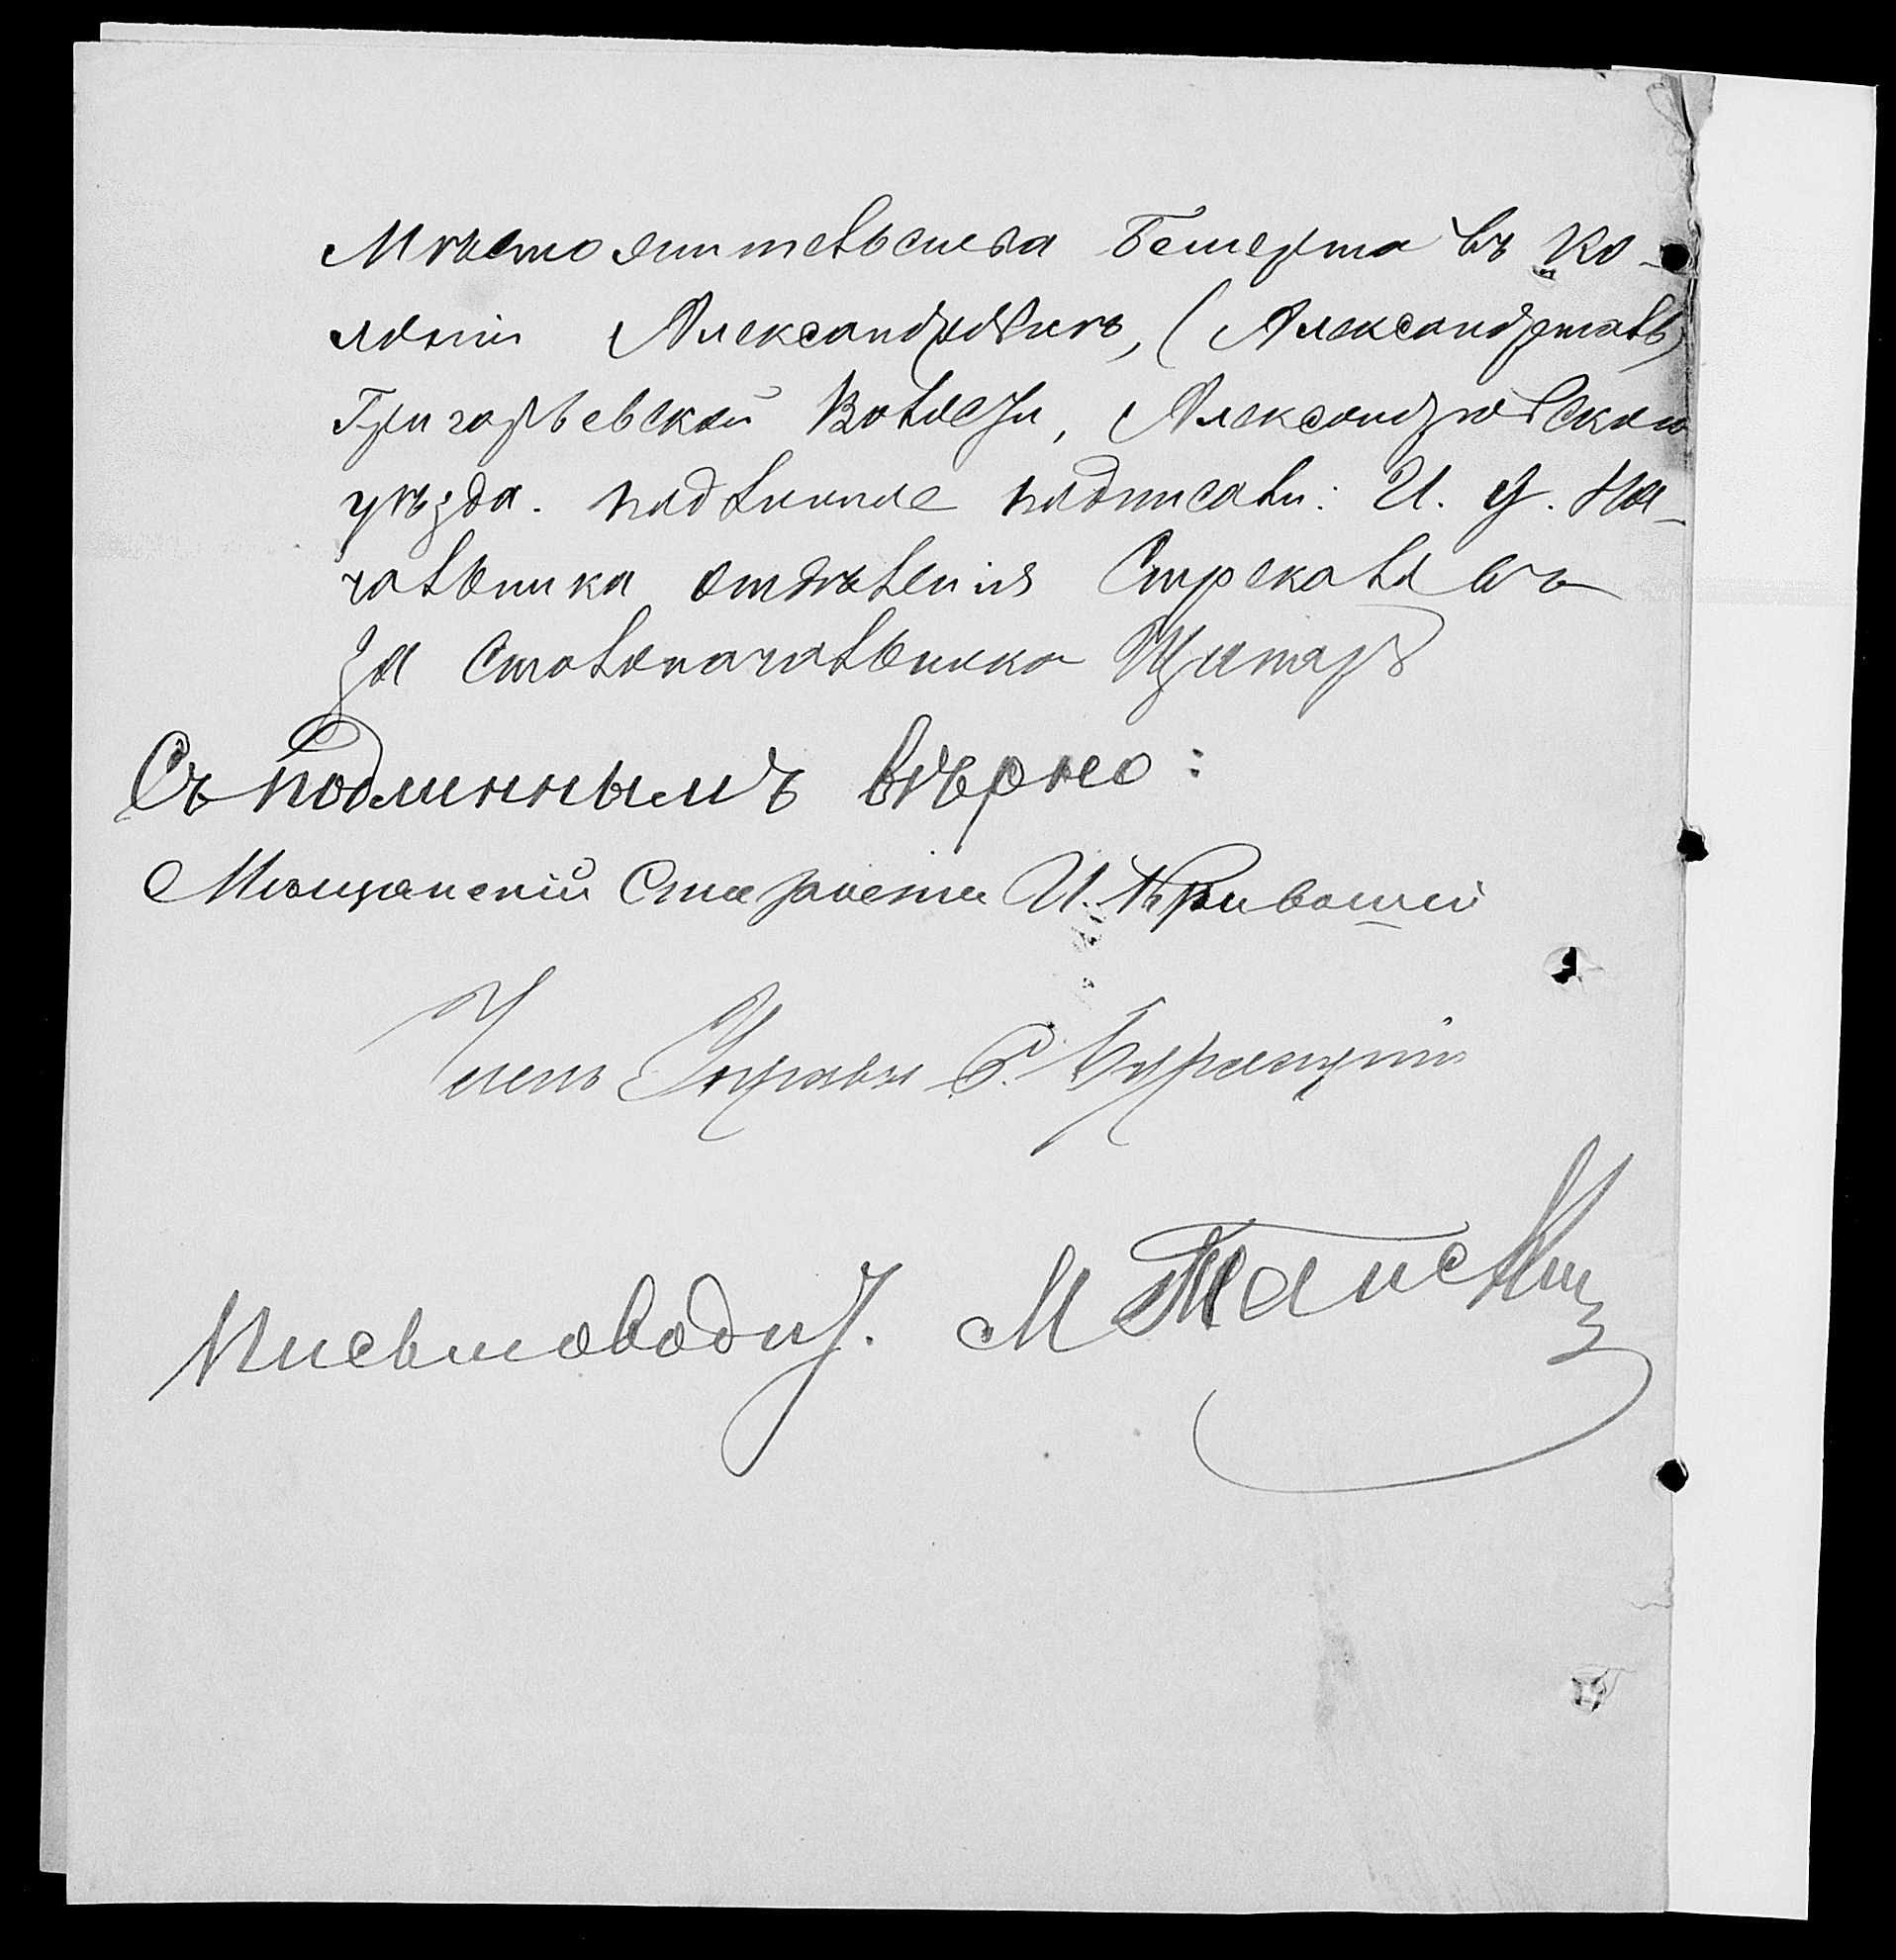 Мѣстожительства Гемерта въ Ко-
лоніи Александровкѣ, (Александрталь)
Григорьевской Волости, Александровскаго
уѣзда. подлинное подписали: И. д. На-
чальника отдѣленія
За Столоначальника
Съ подлиннымъ вѣрно:
Мѣщанскій Староста И. Кривошей
Членъ Управы
Письмоводит. М